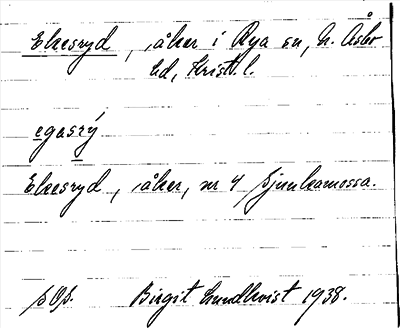 Ekesryd, åker i Rya sn, N. Åsbo
hd, Krist. l.
egasrý
Ekesryd, åker, nr 4 Ljunkamossa.
Birgit Lundkvist 1938.